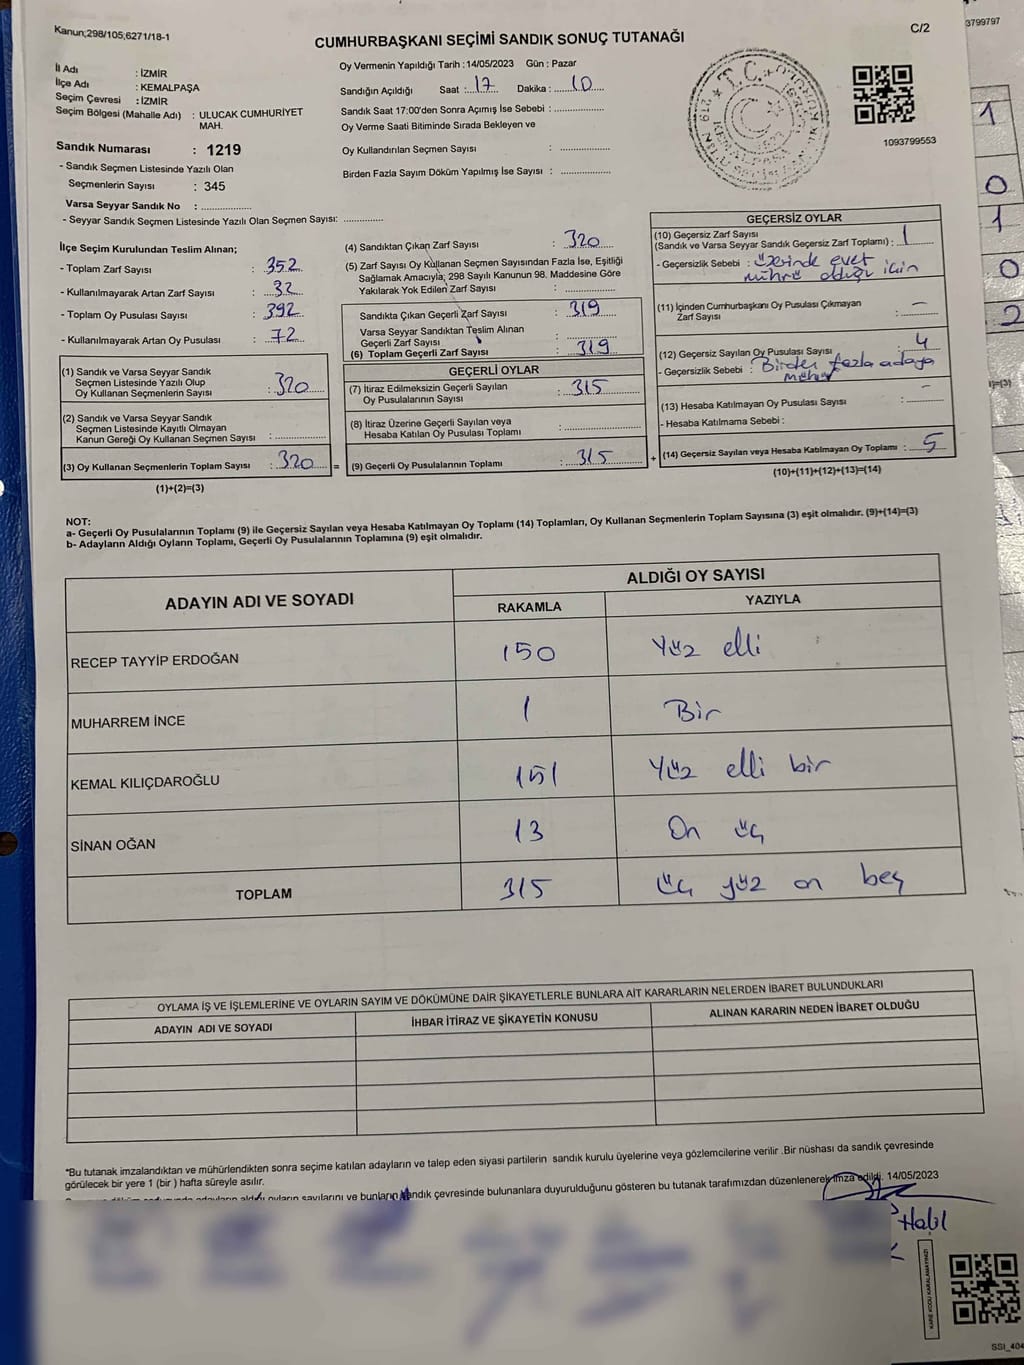 Kanun;298/105,6271/18-1
C/2
3799797
CUMHURBAŞKANI SEÇİMİ SANDIK SONUÇ TUTANAĞI
İl Adı : İZMİR
İlçe Adı : KEMALPAŞA
Seçim Çevresi : İZMİR
Seçim Bölgesi (Mahalle Adı) : ULUCAK CUMHURİYET MAH.
Sandık Numarası : 1219
- Sandık Seçmen Listesinde Yazılı Olan
Seçmenlerin Sayısı : 345
Varsa Seyyar Sandık No : ..............
- Seyyar Sandık Seçmen Listesinde Yazılı Olan Seçmen Sayısı: ..............
Oy Vermenin Yapıldığı Tarih : 14/05/2023 Gün : Pazar
Sandığın Açıldığı Saat : 17 Dakika : 10
Sandık Saat 17:00'den Sonra Açımış İse Sebebi : ..............
Oy Verme Saati Bitiminde Sırada Bekleyen ve
Oy Kullandırılan Seçmen Sayısı : ..............
Birden Fazla Sayım Döküm Yapılmış İse Sayısı : ..............
T.C.
KEMALPAŞA
1093799553
İlçe Seçim Kurulundan Teslim Alınan;
- Toplam Zarf Sayısı : 352
- Kullanılmayarak Artan Zarf Sayısı : 32
- Toplam Oy Pusulası Sayısı : 392
- Kullanılmayarak Artan Oy Pusulası : 72
(1) Sandık ve Varsa Seyyar Sandık
Seçmen Listesinde Yazılı Olup
Oy Kullanan Seçmenlerin Sayısı : 320
(2) Sandık ve Varsa Seyyar Sandık
Seçmen Listesinde Kayıtlı Olmayan
Kanun Gereği Oy Kullanan Seçmen Sayısı : ..............
(3) Oy Kullanan Seçmenlerin Toplam Sayısı : 320 =
(1)+(2)=(3)
(4) Sandıktan Çıkan Zarf Sayısı : 320
(5) Zarf Sayısı Oy Kullanan Seçmen Sayısından Fazla İse, Eşitliği
Sağlamak Amacıyla; 298 Sayılı Kanunun 98. Maddesine Göre
Yakılarak Yok Edilen Zarf Sayısı : ..............
Sandıkta Çıkan Geçerli Zarf Sayısı : 319
Varsa Seyyar Sandıktan Teslim Alınan
Geçerli Zarf Sayısı : ..............
(6) Toplam Geçerli Zarf Sayısı : 319
GEÇERLİ OYLAR
(7) İtiraz Edilmeksizin Geçerli Sayılan
Oy Pusulalarının Sayısı : 315
(8) İtiraz Üzerine Geçerli Sayılan veya
Hesaba Katılan Oy Pusulası Toplamı : ..............
(9) Geçerli Oy Pusulalarının Toplamı : 315 +
GEÇERSİZ OYLAR
(10) Geçersiz Zarf Sayısı
(Sandık ve Varsa Seyyar Sandık Geçersiz Zarf Toplamı) : 1
- Geçersizlik Sebebi : üzerinde evet
mührü olduğu için
(11) İçinden Cumhurbaşkanı Oy Pusulası Çıkmayan
Zarf Sayısı : -
(12) Geçersiz Sayılan Oy Pusulası Sayısı : 4
- Geçersizlik Sebebi : Birden fazla adaya
mühür
(13) Hesaba Katılmayan Oy Pusulası Sayısı : -
- Hesaba Katılmama Sebebi :
(14) Geçersiz Sayılan veya Hesaba Katılmayan Oy Toplamı : 5
(10)+(11)+(12)+(13)=(14)
NOT:
a- Geçerli Oy Pusulalarının Toplamı (9) ile Geçersiz Sayılan veya Hesaba Katılmayan Oy Toplamı (14) Toplamları, Oy Kullanan Seçmenlerin Toplam Sayısına (3) eşit olmalıdır. (9)+(14)=(3)
b- Adayların Aldığı Oyların Toplamı, Geçerli Oy Pusulalarının Toplamına (9) eşit olmalıdır.
ADAYIN ADI VE SOYADI ALDIĞI OY SAYISI
RAKAMLA YAZIYLA
RECEP TAYYİP ERDOĞAN 150 Yüz elli
MUHARREM İNCE 1 Bir
KEMAL KILIÇDAROĞLU 151 Yüz elli bir
SİNAN OĞAN 13 On üç
TOPLAM 315 Üç yüz on beş
OYLAMA İŞ VE İŞLEMLERİNE VE OYLARIN SAYIM VE DÖKÜMÜNE DAİR ŞİKAYETLERLE BUNLARA AİT KARARLARIN NELERDEN İBARET BULUNDUKLARI
ADAYIN ADI VE SOYADI İHBAR İTİRAZ VE ŞİKAYETİN KONUSU ALINAN KARARIN NEDEN İBARET OLDUĞU
*Bu tutanak imzalandıktan ve mühürlendikten sonra seçime katılan adayların ve talep eden siyasi partilerin sandık kurulu üyelerine veya gözlemcilerine verilir .Bir nüshası da sandık çevresinde
görülecek bir yere 1 (bir ) hafta süreyle asılır.
adayların aldığı oyların sayılarını ve bunların sandık çevresinde bulunanlara duyurulduğunu gösteren bu tutanak tarafımızdan düzenlenerek imza edildi. 14/05/2023
Halil
KARE KODU KARALAMAYINIZ!
SSI_404
1
0
1
0
2